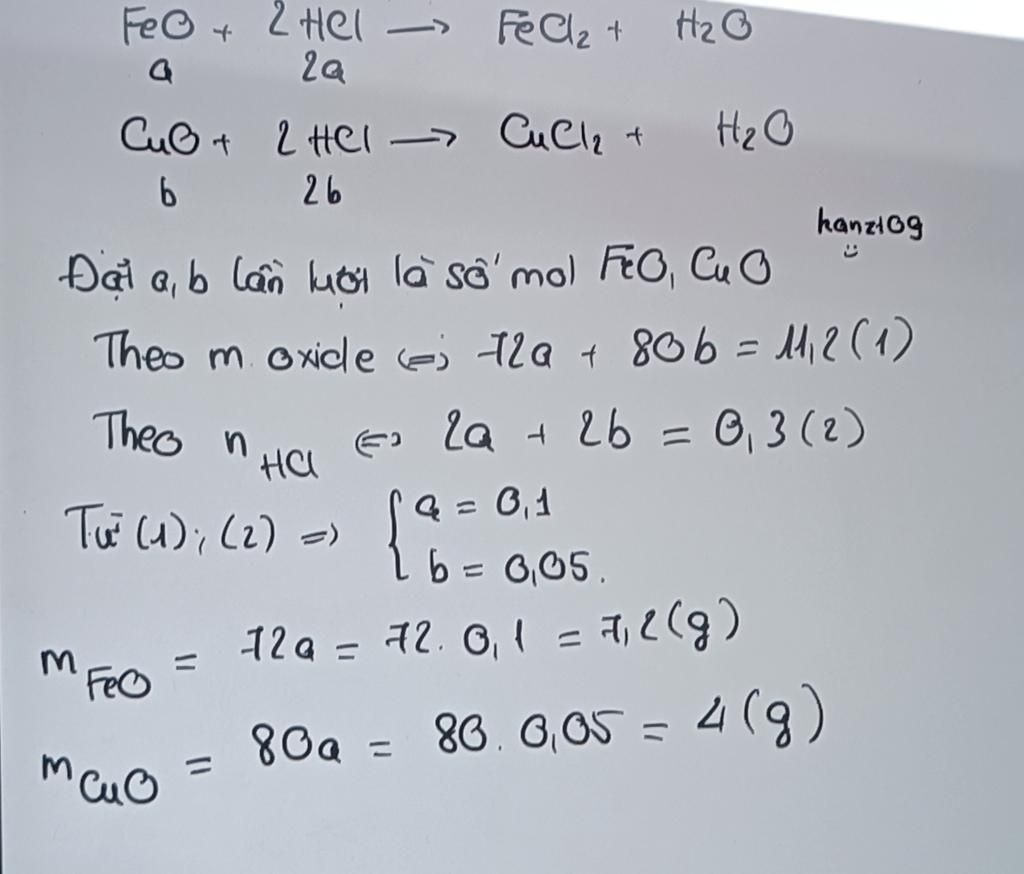 FeO + 2 HCl → FeCl₂ + H₂O
a 2a
CuO + 2 HCl → CuCl₂ + H₂O
b 2b
hanz10g
Đặt a, b lần lượt là số mol FeO, CuO
Theo m oxide ⇔ 72a + 80b = 11,2 (1)
Theo n HCl ⇔ 2a + 2b = 0,3 (2)
Từ (1); (2) ⇒ { a = 0,1
b = 0,05.
m FeO = 72a = 72. 0,1 = 7,2 (g)
m CuO = 80a = 80. 0,05 = 4 (g)